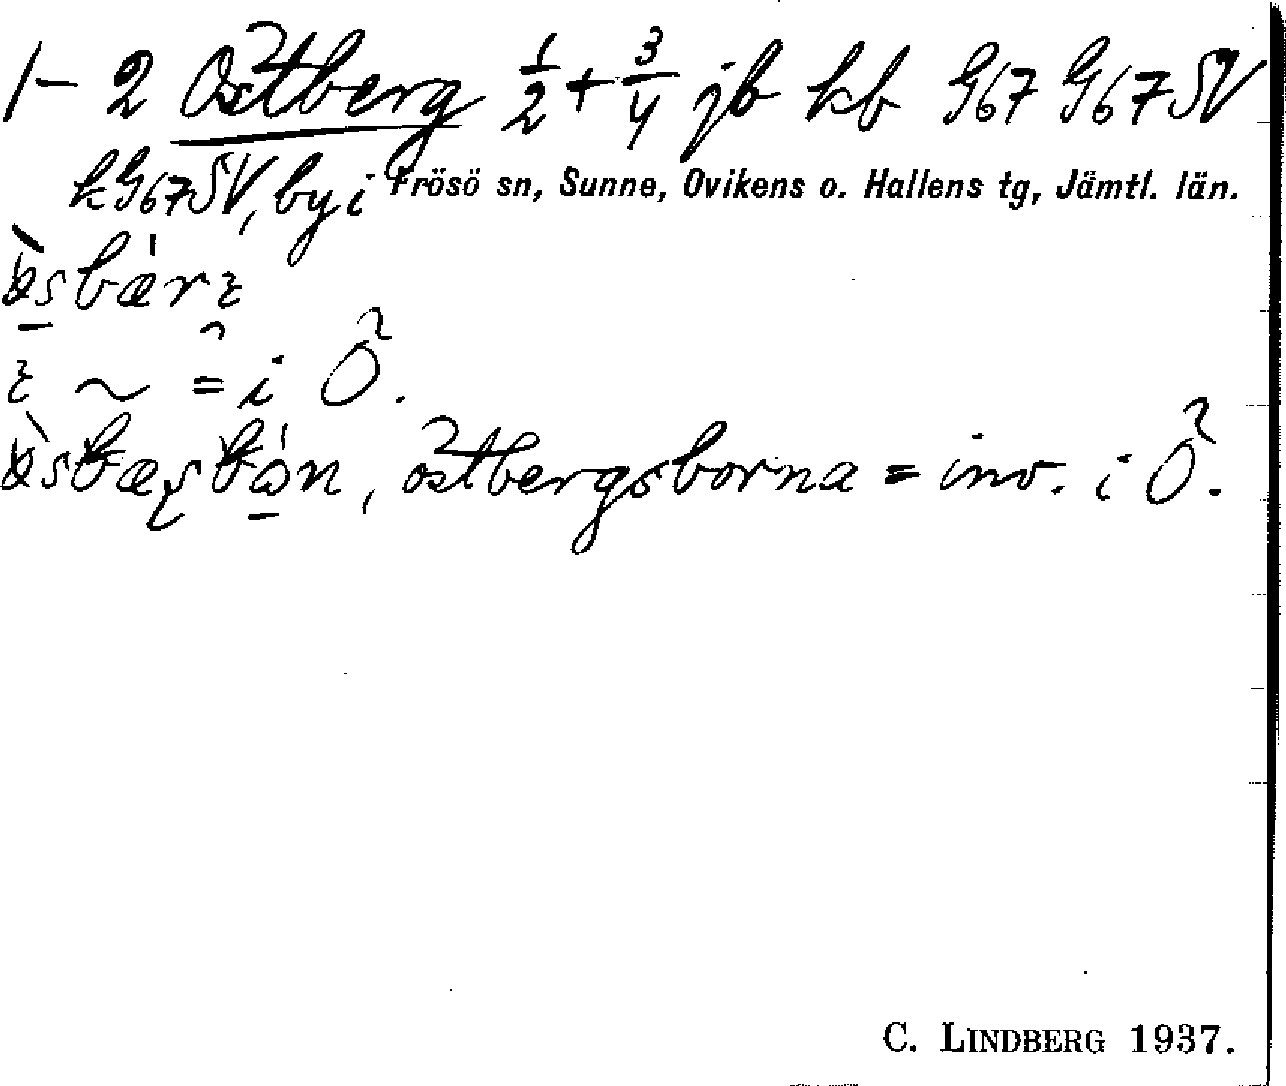 1-2 Östberg 1/2 + 3/4 jb kb G67 G67SV
kG67SV, by i Frösö sn, Sunne, Ovikens o. Hallens tg, Jämtl. län.
~ = i Ö.
östbergsborna = inv. i Ö.
C. LINDBERG 1937.